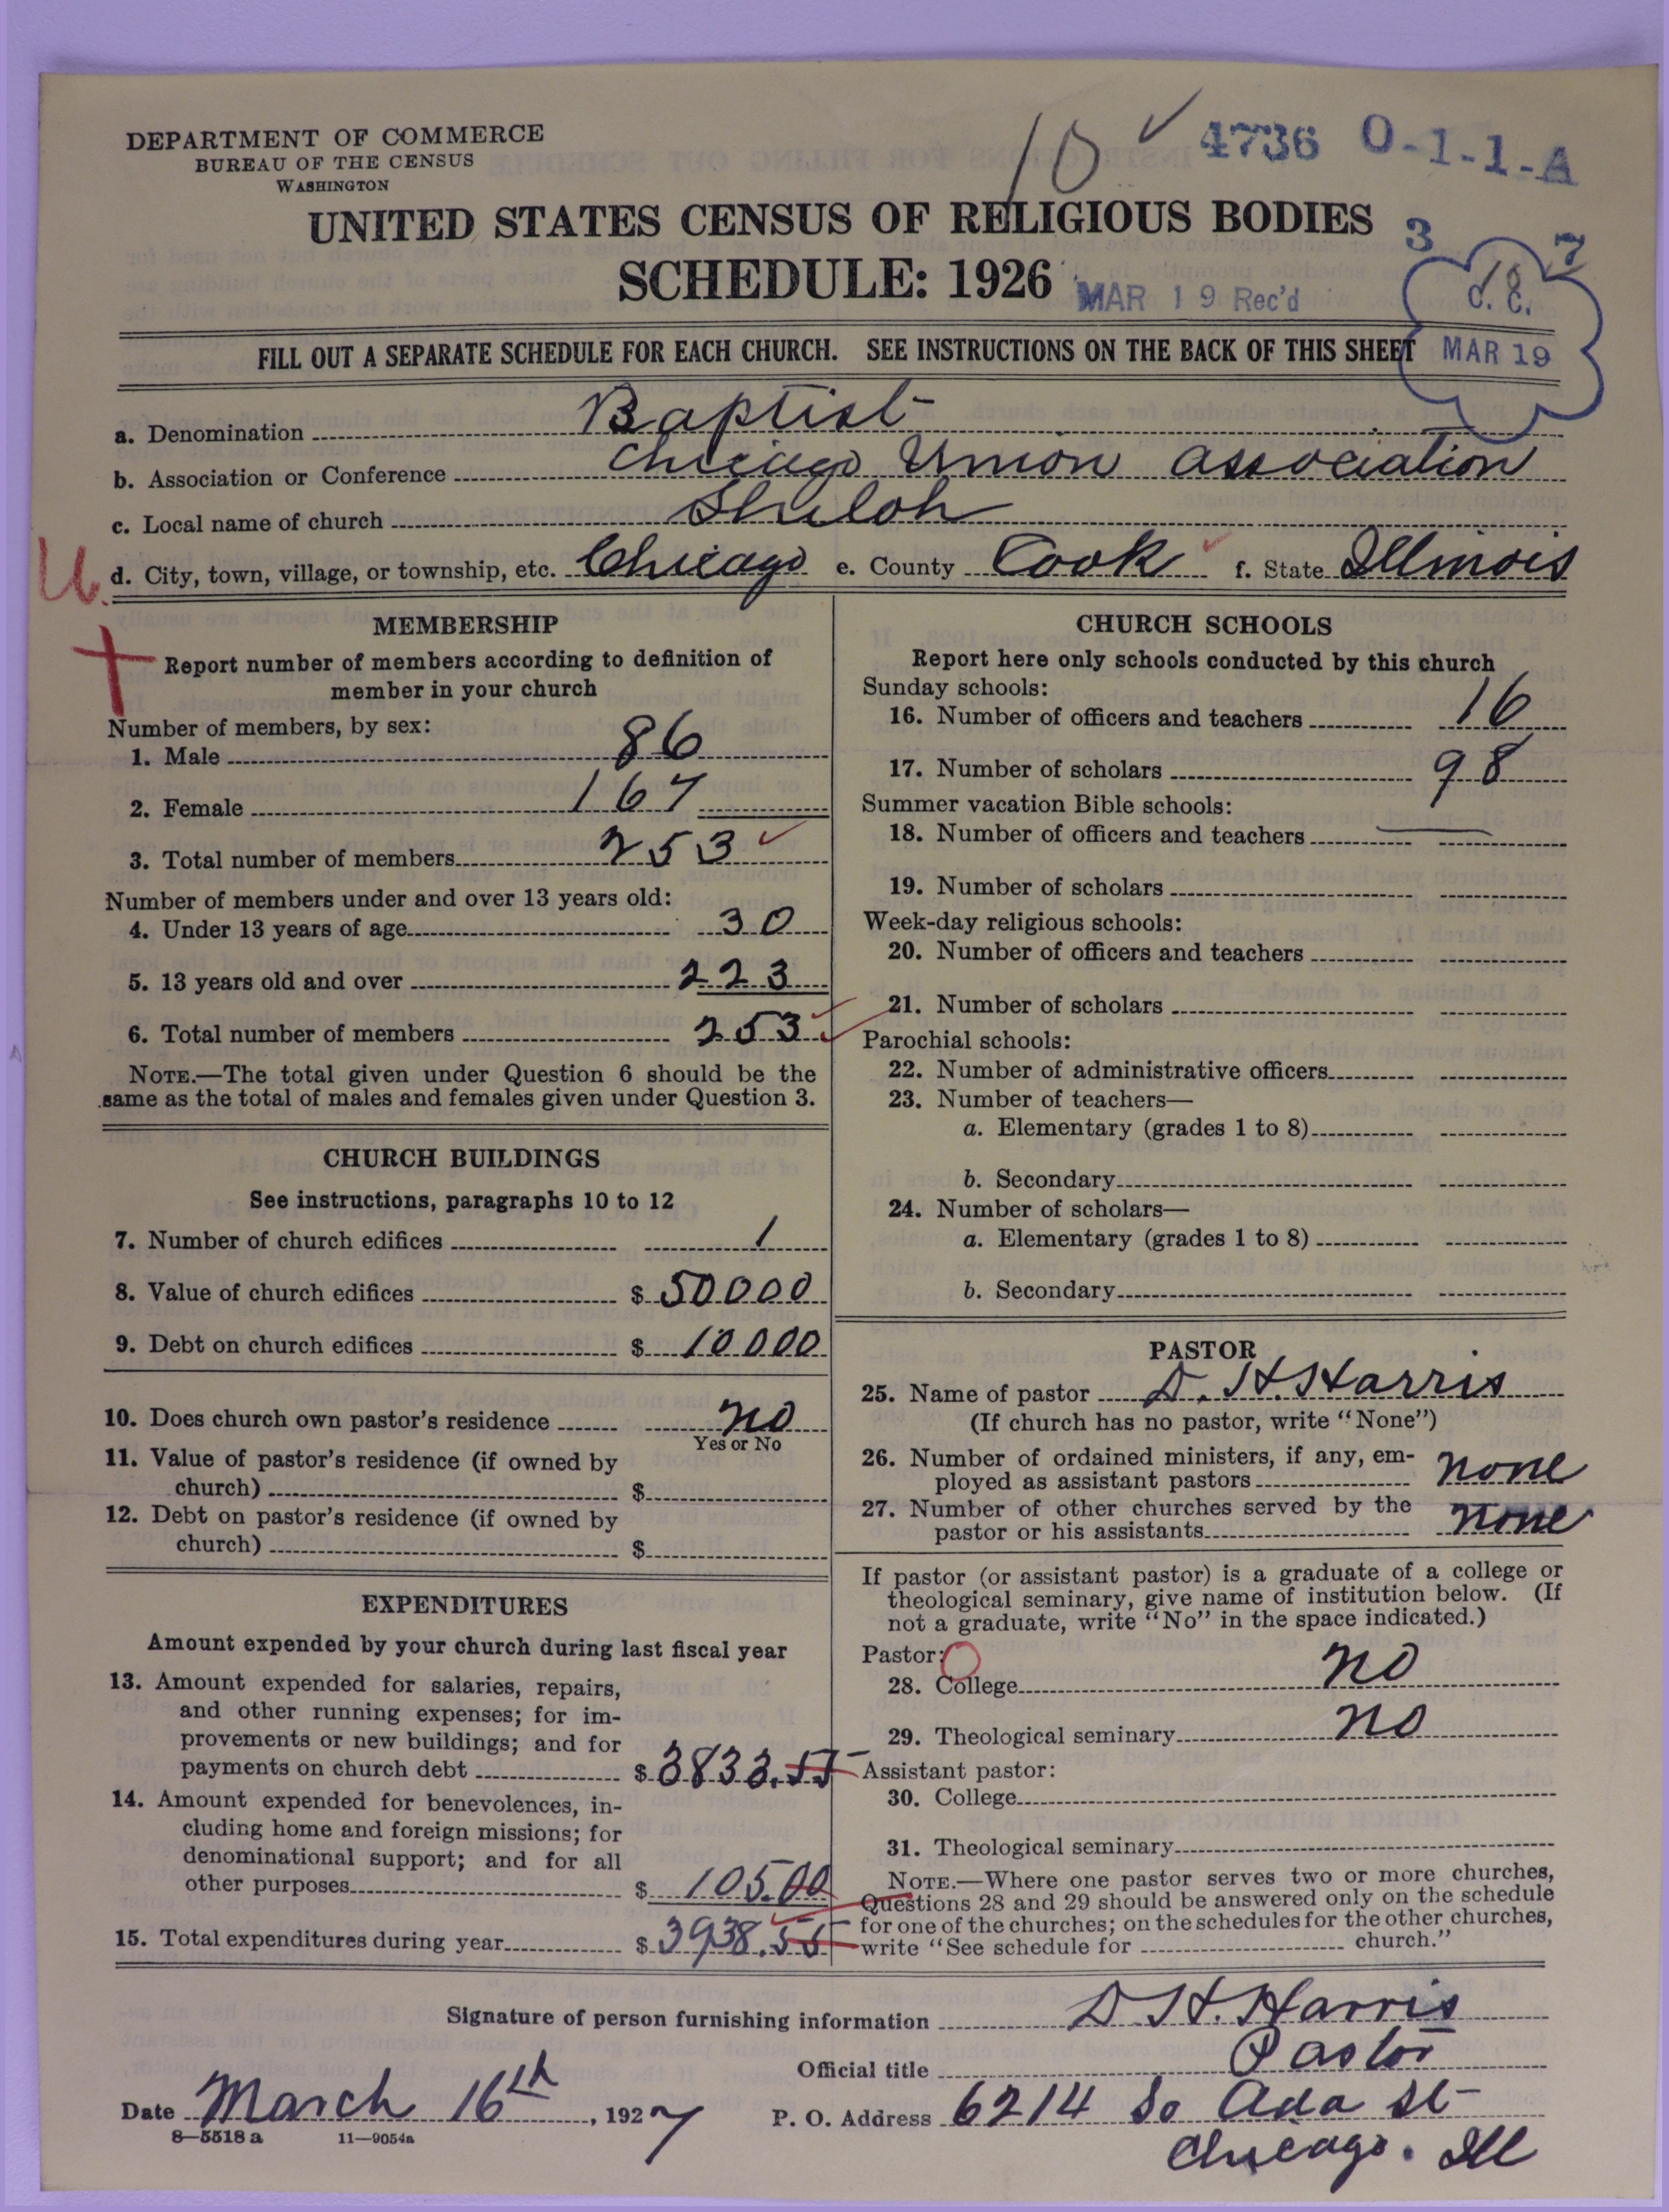 DEPARTMENT OF COMMERCE
BUREAU OF THE CENSUS
WASHINGTON
10 ✓ 4736 O-1-1-A
UNITED STATES CENSUS OF RELIGIOUS BODIES
3 7
SCHEDULE: 1926
MAR 19 Rec'd
10
C. C.
MAR 19
FILL OUT A SEPARATE SCHEDULE FOR EACH CHURCH. SEE INSTRUCTIONS ON THE BACK OF THIS SHEET
a. Denomination Baptist
b. Association or Conference Chicago Union Association
c. Local name of church Shiloh
U. d. City, town, village, or township, etc. Chicago e. County Cook f. State Illinois
MEMBERSHIP
Report number of members according to definition of
member in your church
Number of members, by sex:
1. Male 86
2. Female 167
3. Total number of members 253 ✓
Number of members under and over 13 years old:
4. Under 13 years of age 30
5. 13 years old and over 223
6. Total number of members 253
NOTE.—The total given under Question 6 should be the
same as the total of males and females given under Question 3.
CHURCH BUILDINGS
See instructions, paragraphs 10 to 12
7. Number of church edifices 1
8. Value of church edifices $ 50000
9. Debt on church edifices $ 10000
10. Does church own pastor's residence no
Yes or No
11. Value of pastor's residence (if owned by
church) $
12. Debt on pastor's residence (if owned by
church) $
EXPENDITURES
Amount expended by your church during last fiscal year
13. Amount expended for salaries, repairs,
and other running expenses; for im-
provements or new buildings; and for
payments on church debt $ 3833.55
14. Amount expended for benevolences, in-
cluding home and foreign missions; for
denominational support; and for all
other purposes $ 105.00
15. Total expenditures during year $ 3938.55
CHURCH SCHOOLS
Report here only schools conducted by this church
Sunday schools:
16. Number of officers and teachers 16
17. Number of scholars 98
Summer vacation Bible schools:
18. Number of officers and teachers
19. Number of scholars
Week-day religious schools:
20. Number of officers and teachers
21. Number of scholars
Parochial schools:
22. Number of administrative officers
23. Number of teachers—
a. Elementary (grades 1 to 8)
b. Secondary
24. Number of scholars—
a. Elementary (grades 1 to 8)
b. Secondary
PASTOR
25. Name of pastor D. H. Harris
(If church has no pastor, write "None")
26. Number of ordained ministers, if any, em-
ployed as assistant pastors none
27. Number of other churches served by the
pastor or his assistants none
If pastor (or assistant pastor) is a graduate of a college or
theological seminary, give name of institution below. (If
not a graduate, write "No" in the space indicated.)
Pastor:
28. College no
29. Theological seminary no
Assistant pastor:
30. College
31. Theological seminary
NOTE.—Where one pastor serves two or more churches,
Questions 28 and 29 should be answered only on the schedule
for one of the churches; on the schedules for the other churches,
write "See schedule for church."
Signature of person furnishing information D H. Harris
Official title Pastor
Date March 16th, 1927 P. O. Address 6214 So Ada St
8—5518a 11—9054a
Chicago. Ill